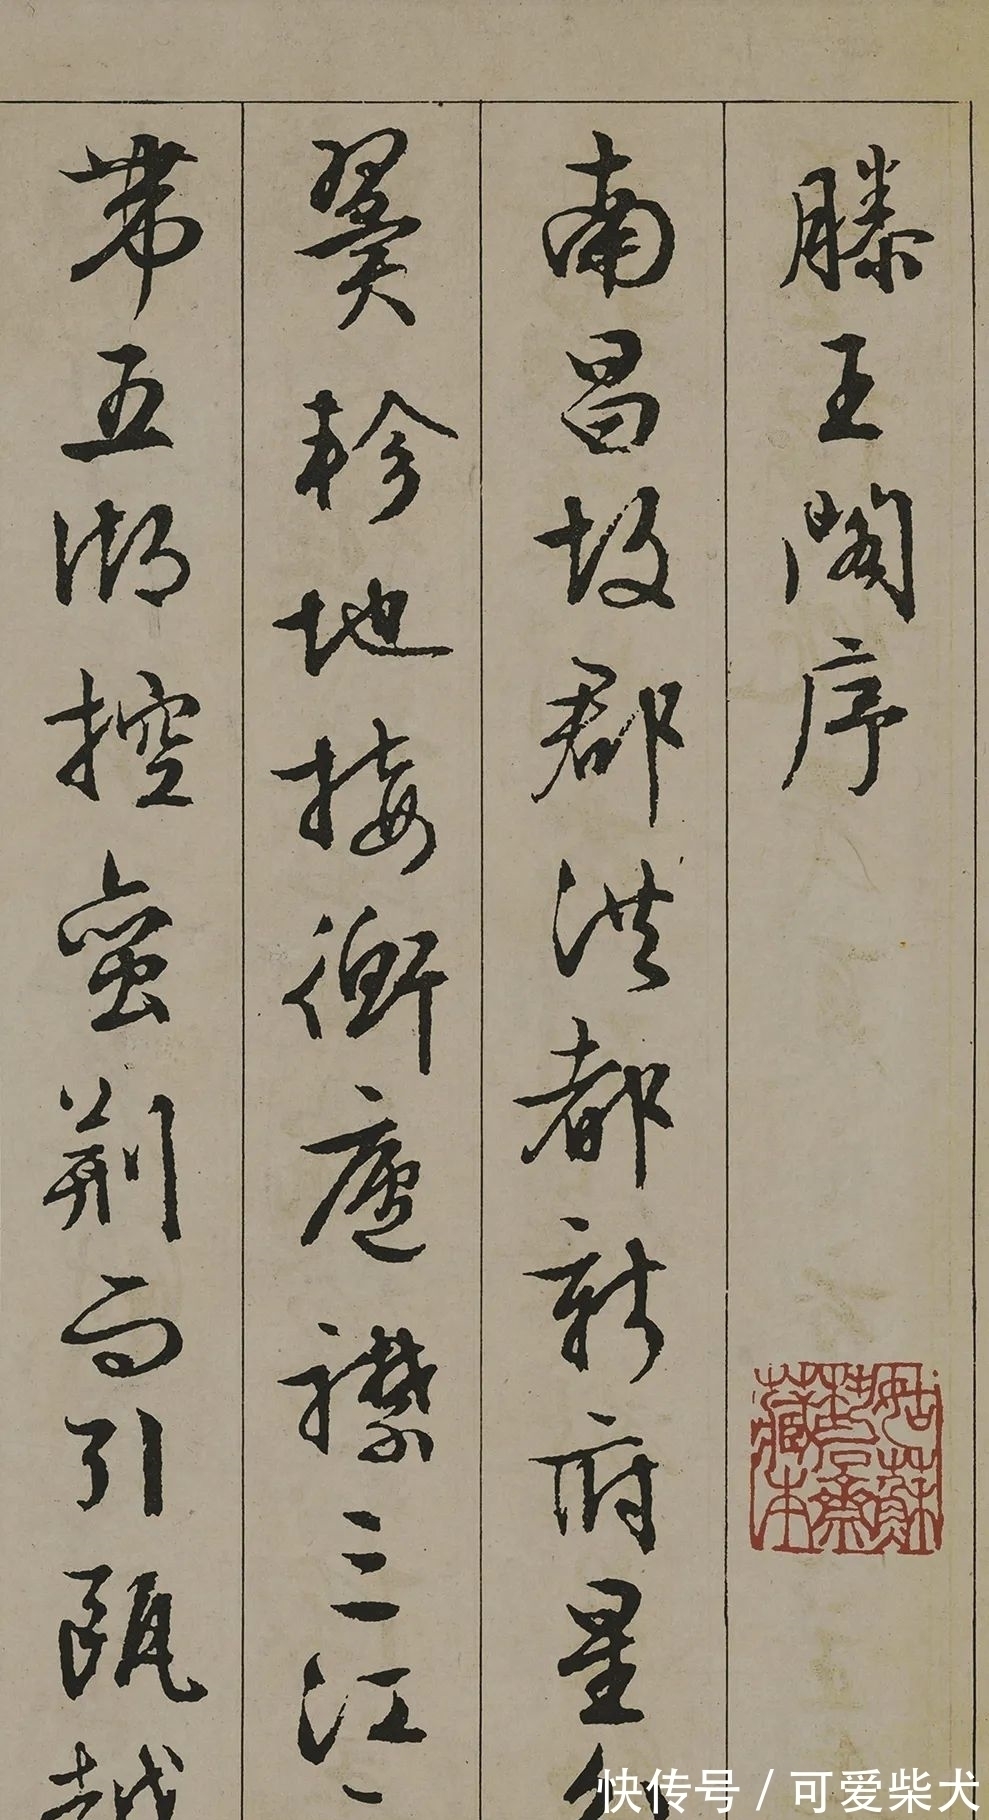 滕王閣序
南昌故郡洪都新府星分
翼軫地接衡廬襟三江
帶五湖控蠻荊而引甌越
姑蘇
藏本
快传号 / 可爱柴犬